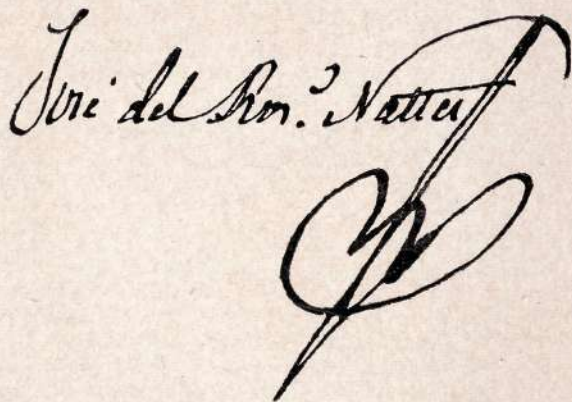 José del Ros.º Natter